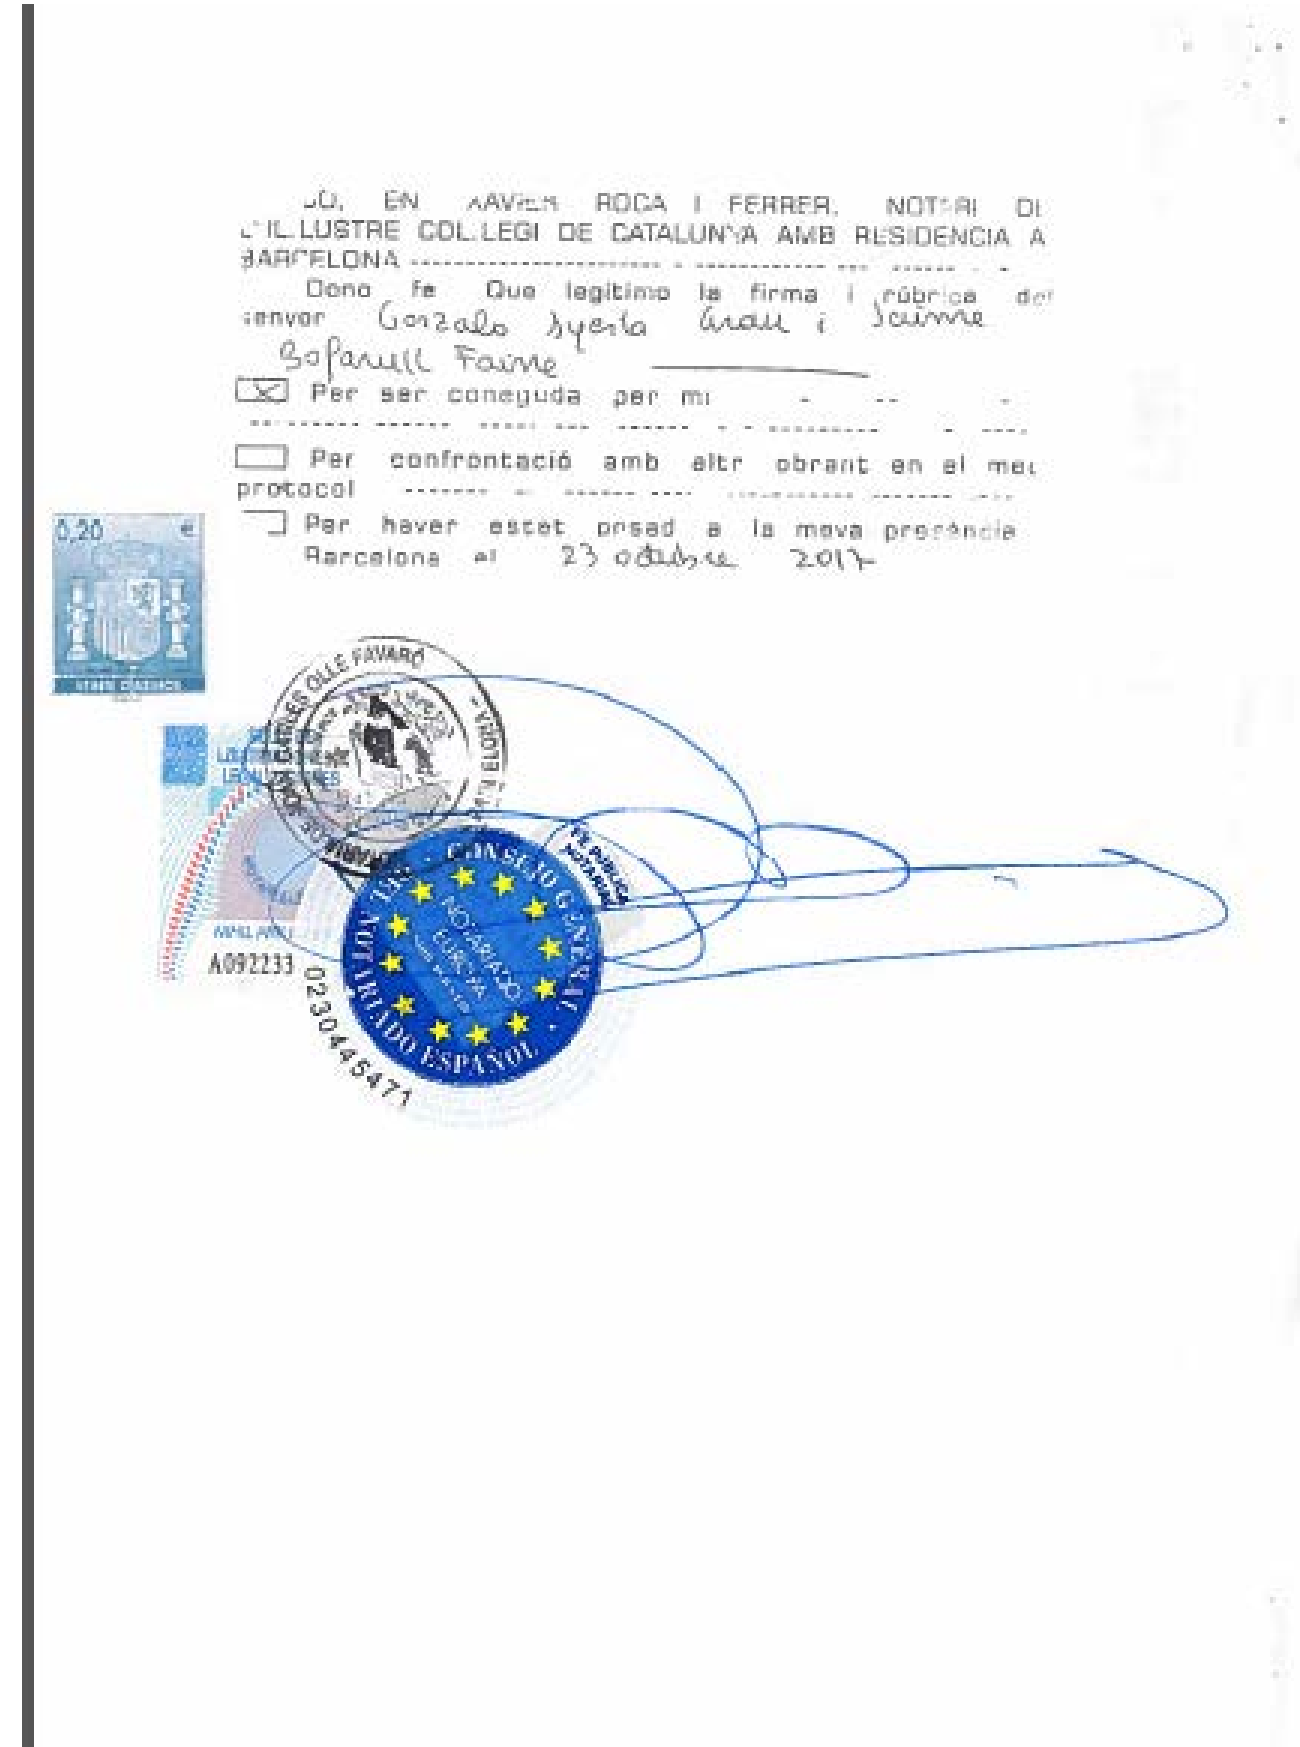 JO, EN XAVIER ROCA I FERRER, NOTARI DE
L'IL.LUSTRE COL.LEGI DE CATALUNYA AMB RESIDENCIA A
BARCELONA
Dono fe Que legitimo la firma i rúbrica del
senyor Gonzalo Grau i Jaume
Bofarull
Per ser coneguda per mi
Per confrontació amb altr obrant en el meu
protocol
Per haver estat posad a la meva presència
Barcelona el 23 octubre 2017
0,20 €
JOAN CARLES OLLE FAVARÓ
A092233
FE PÚBLICA
NOTARIAL
CONSEJO GENERAL DEL NOTARIADO ESPAÑOL
NOTARIADO
EUROPA
0230445471